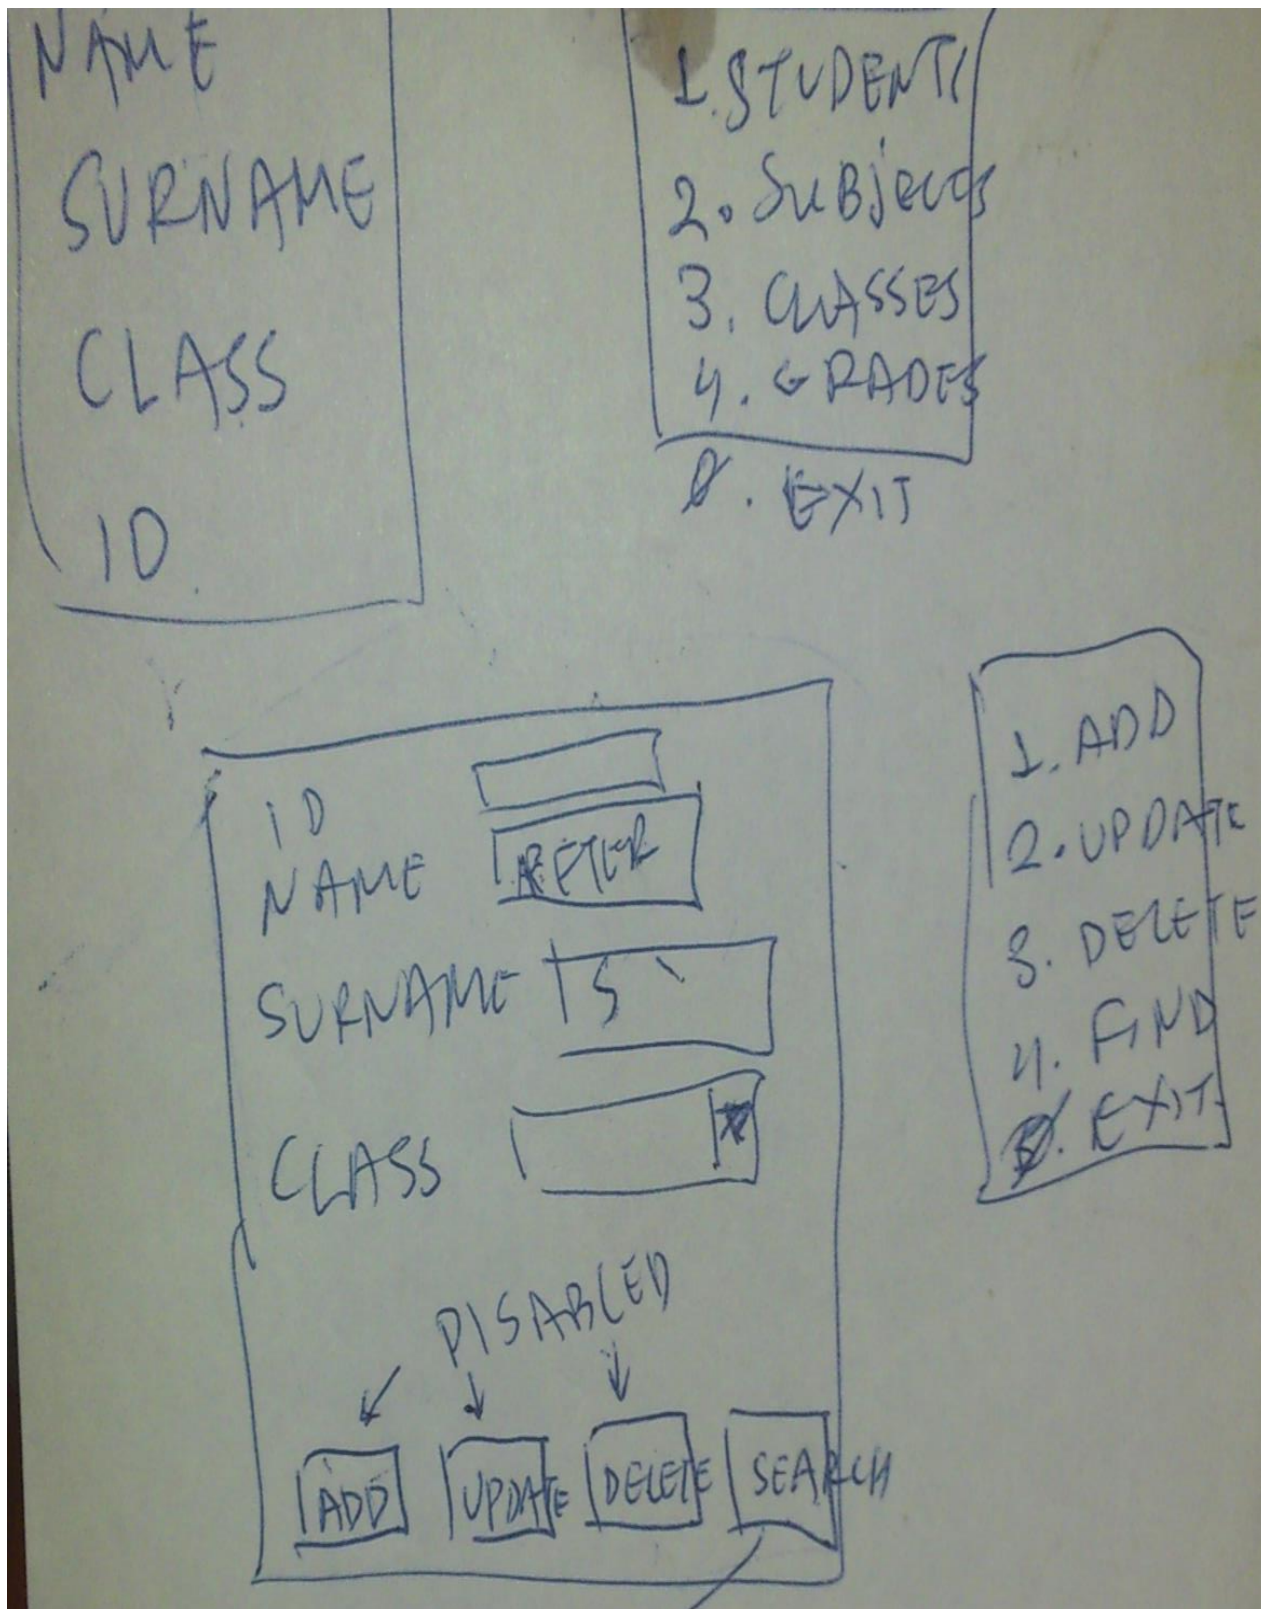 NAME
SURNAME
CLASS
ID
1. STUDENTS
2. SUBJECTS
3. CLASSES
4. GRADES
0. EXIT
ID
NAME
SURNAME S
CLASS
DISABLED
ADD UPDATE DELETE SEARCH
1. ADD
2. UPDATE
3. DELETE
4. FIND
0. EXIT